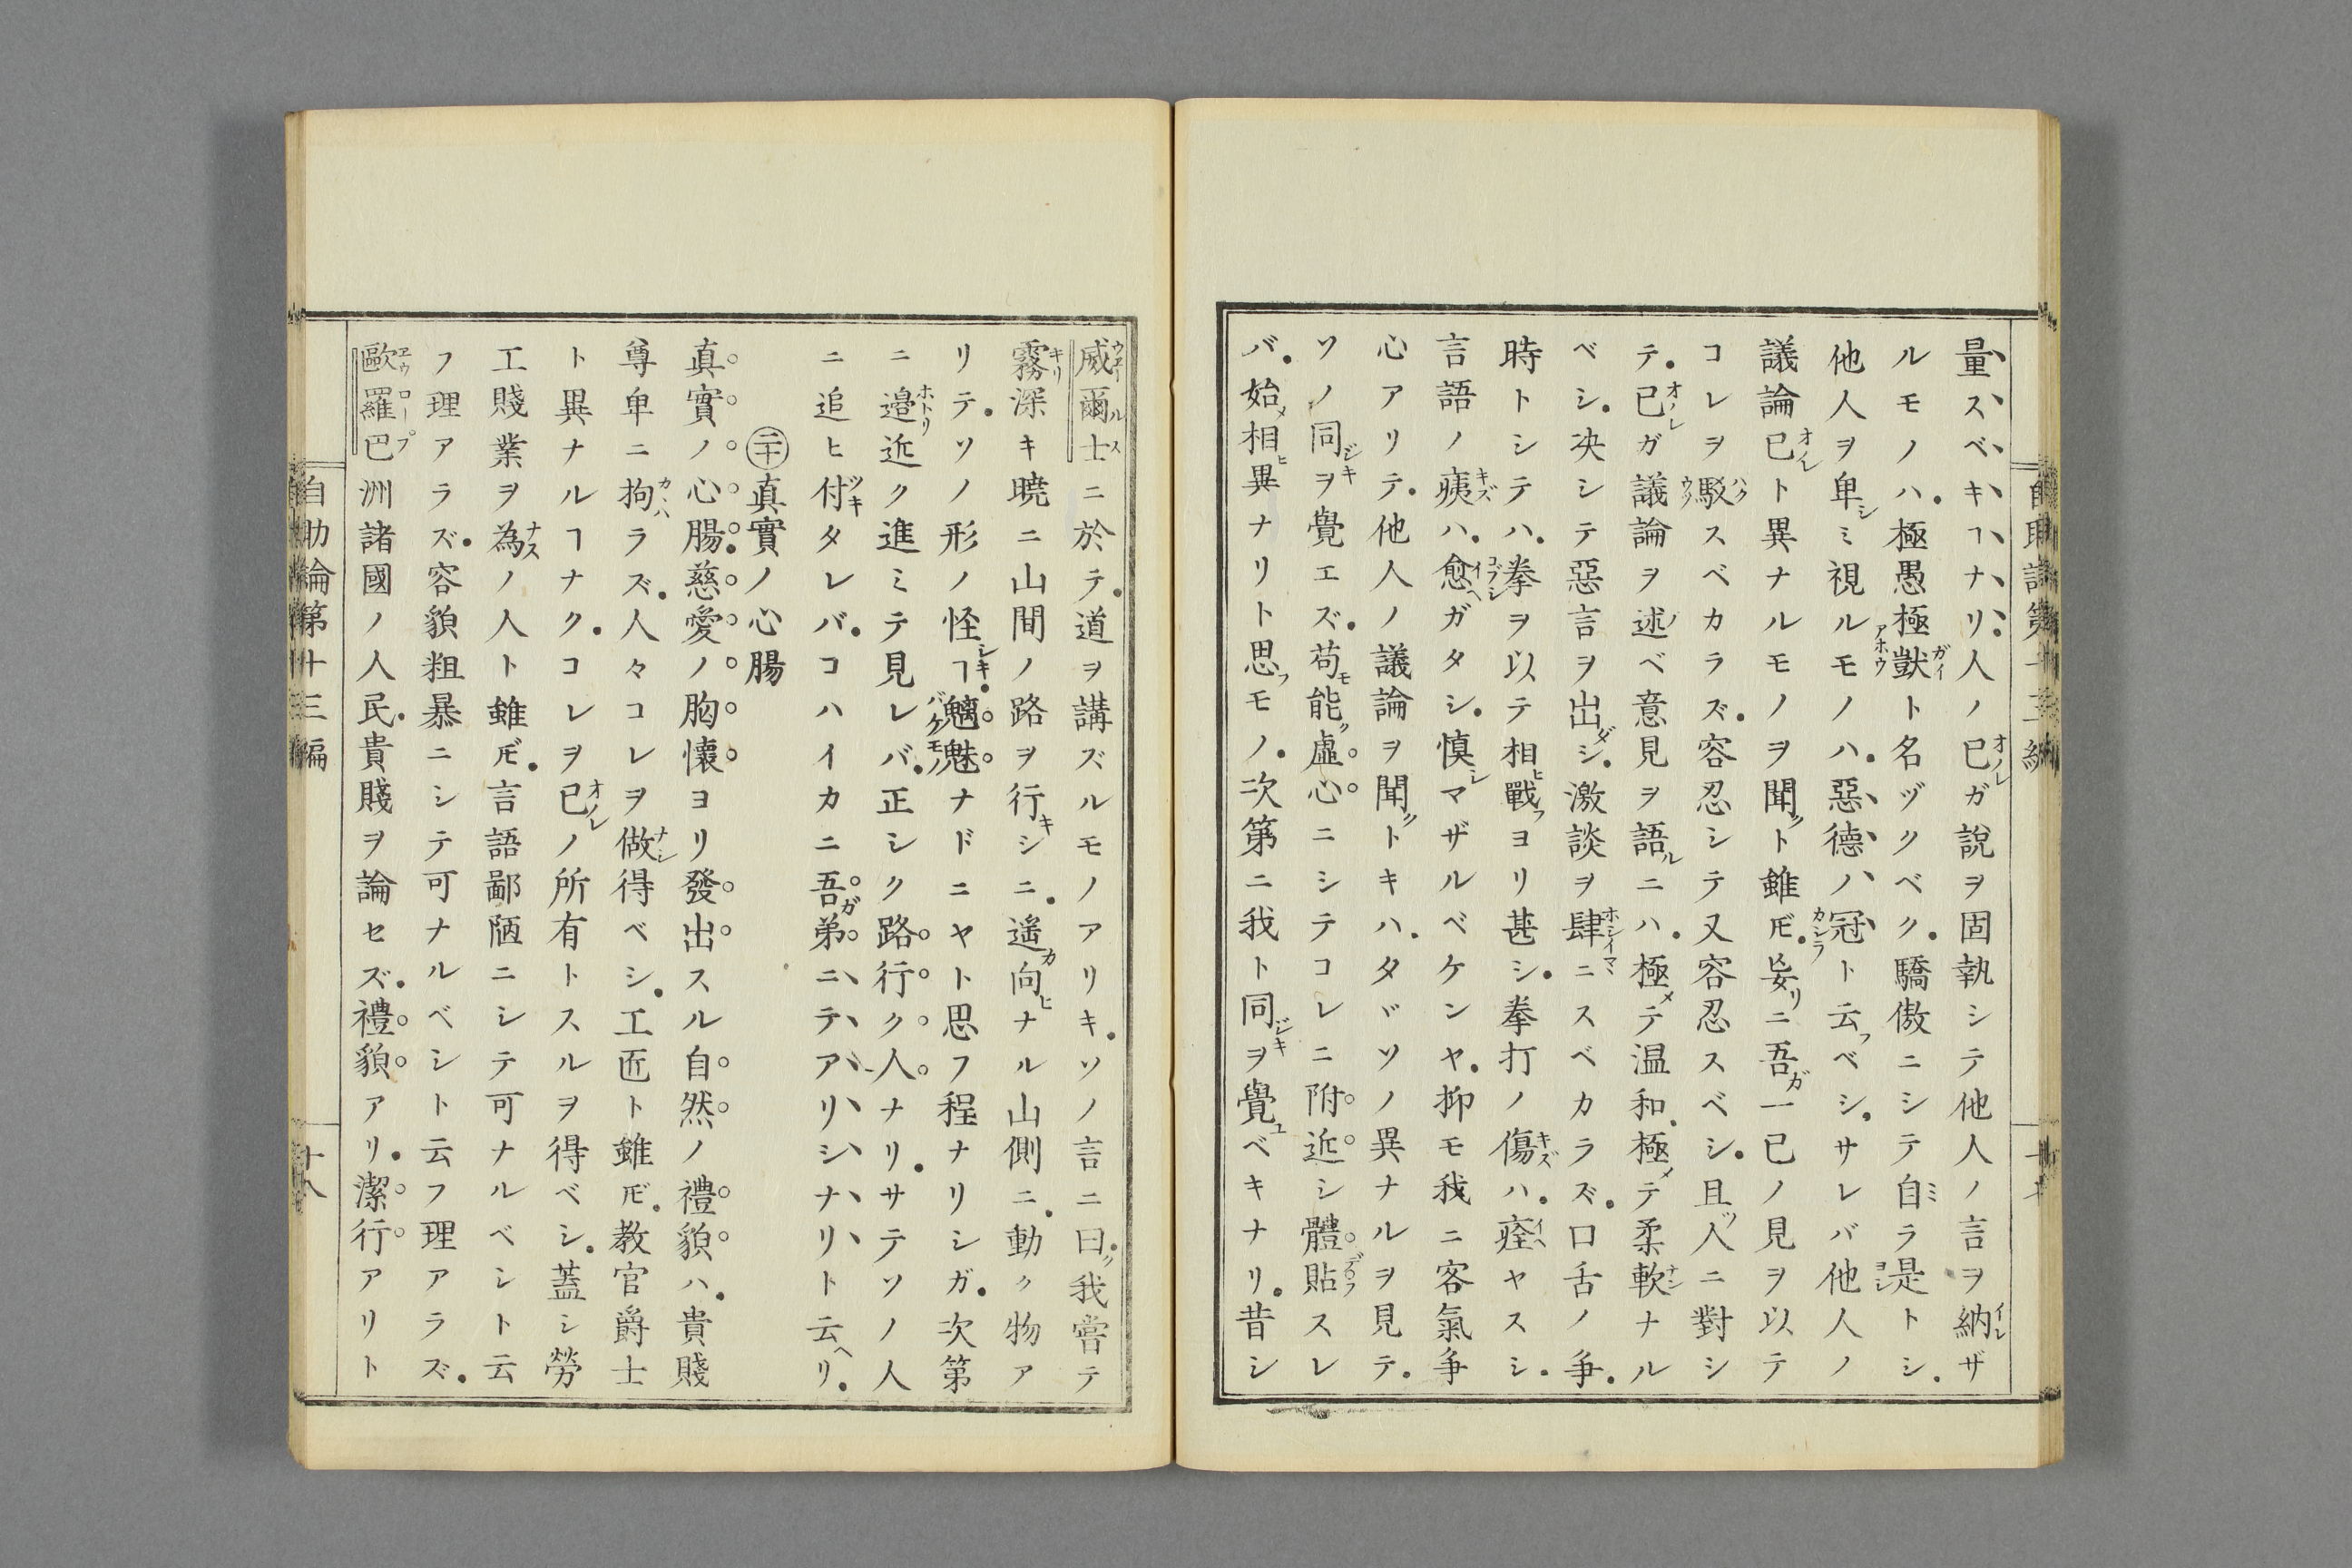 量スベキヿナリ人ノ已ガ說ヲ固執シテ他人ノ言ヲ納ザ
ルモノハ極愚極獃ト名ヅクベク驕傲ニシテ自ラ是トシ
他人ヲ卑ミ視ルモノハ惡德ノ冠ト云ベシサレバ他人ノ
議論已ト異ナルモノヲ聞ト雖𪜈妄ニ吾一已ノ見ヲ以テ
コレヲ駁スベカラズ容忍シテ又容忍スベシ且人ニ對シ
テ已ガ議論ヲ述ベ意見ヲ語ニハ極テ温和極テ柔軟ナル
ベシ决シテ惡言ヲ出シ激談ヲ肆ニスベカラズ口舌ノ爭
時トシテハ拳ヲ以テ相戰ヨリ甚シ拳打ノ傷ハ痊ヤスシ
言語ノ痍ハ愈ガタシ慎マザルベケンヤ抑モ我ニ客氣爭
心アリテ他人ノ議論ヲ聞トキハタヾソノ異ナルヲ見テ
ソノ同ヲ覺エズ苟能虛心ニシテコレニ附近シ體貼スレ
バ始相異ナリト思モノ次第ニ我ト同ヲ覺ベキナリ昔シ
威爾士ニ於テ道ヲ講ズルモノアリキソノ言ニ曰我嘗テ
霧深キ曉ニ山間ノ路ヲ行シニ遙向ナル山側ニ動ク物ア
リテソノ形ノ怪ヿ魑魅ナドニヤト思フ程ナリシガ次第
ニ邉近ク進ミテ見レバ正シク路行ク人ナリサテソノ人
ニ追ヒ付タレバコハイカニ吾弟ニテアリシナリト云リ
㊁十 真實ノ心腸
真實ノ心腸慈愛ノ胸懷ヨリ發出スル自然ノ禮貌ハ貴賤
尊卑ニ拘ラズ人々コレヲ做得ベシ工匠ト雖𪜈教官爵士
ト異ナルヿナクコレヲ已ノ所有トスルヲ得ベシ蓋シ勞
工賤業ヲ為ノ人ト雖𪜈言語鄙陋ニシテ可ナルベシト云
フ理アラズ容貌粗暴ニシテ可ナルベシト云フ理アラズ
歐羅巴洲諸國ノ人民貴賤ヲ論セズ禮貌アリ潔行アリト
自助論第十三編
十八